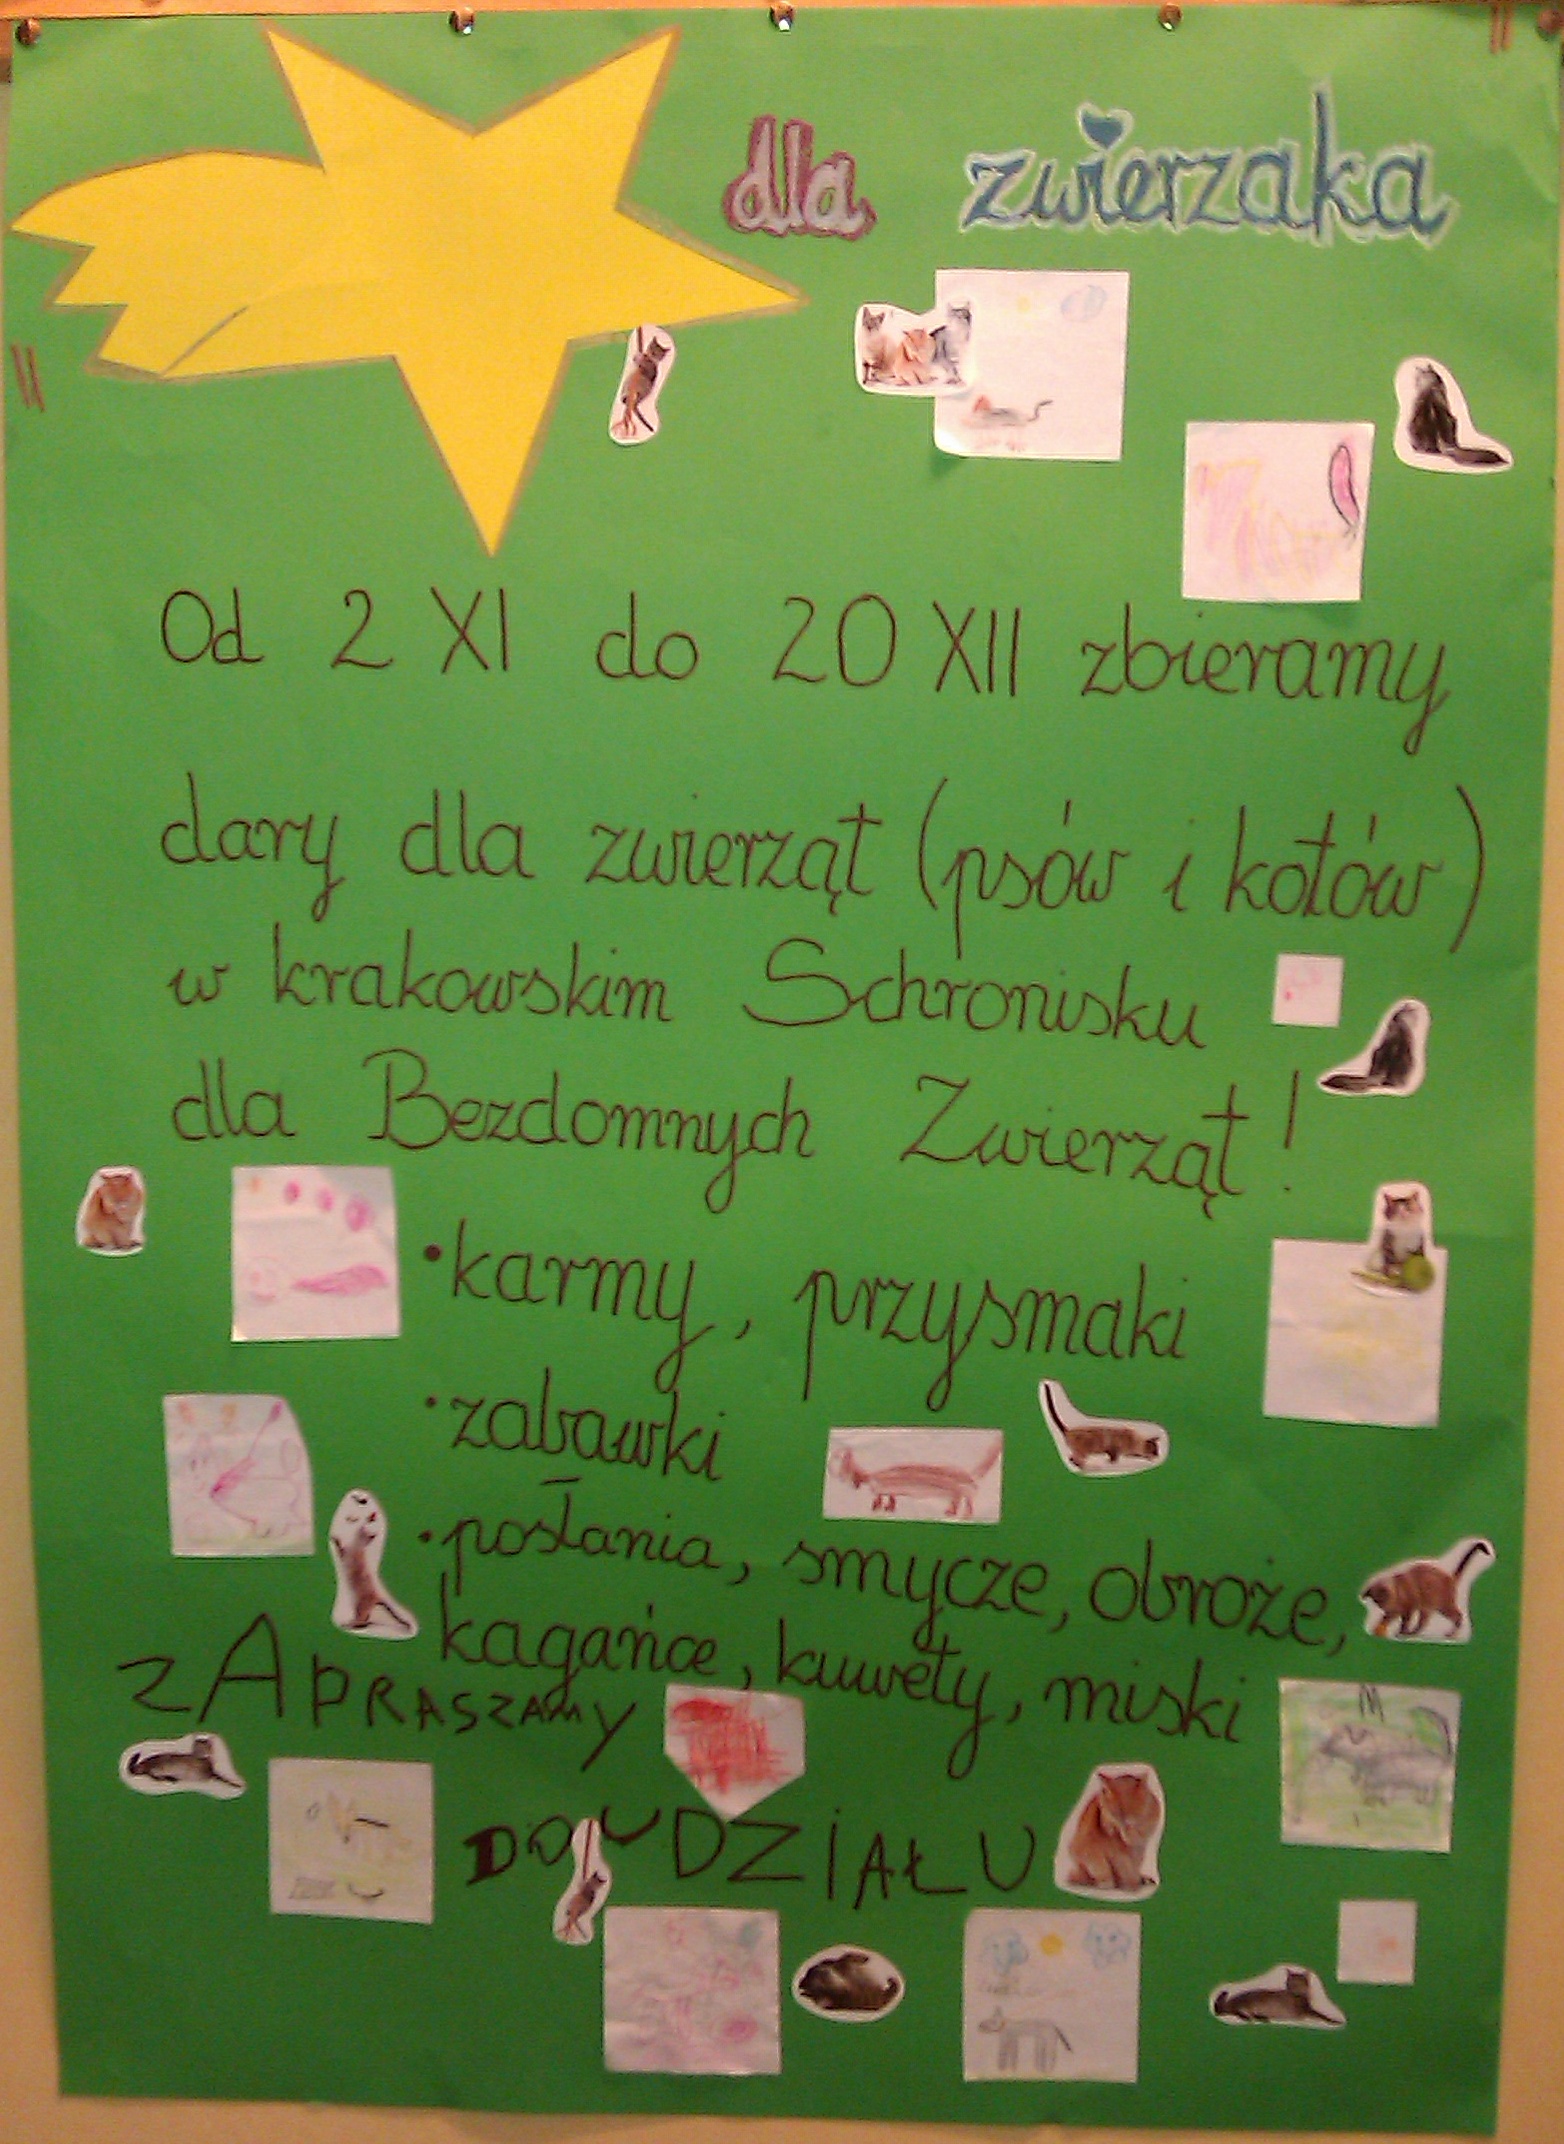 dla zwierzaka
Od 2 XI do 20 XII zbieramy
dary dla zwierząt (psów i kotów)
w krakowskim Schronisku
dla Bezdomnych Zwierząt!
• karmy, przysmaki
• zabawki
• posłania, smycze, obroże,
kagańce, kuwety, miski
zAPRASZAMY
DO UDZIAŁU